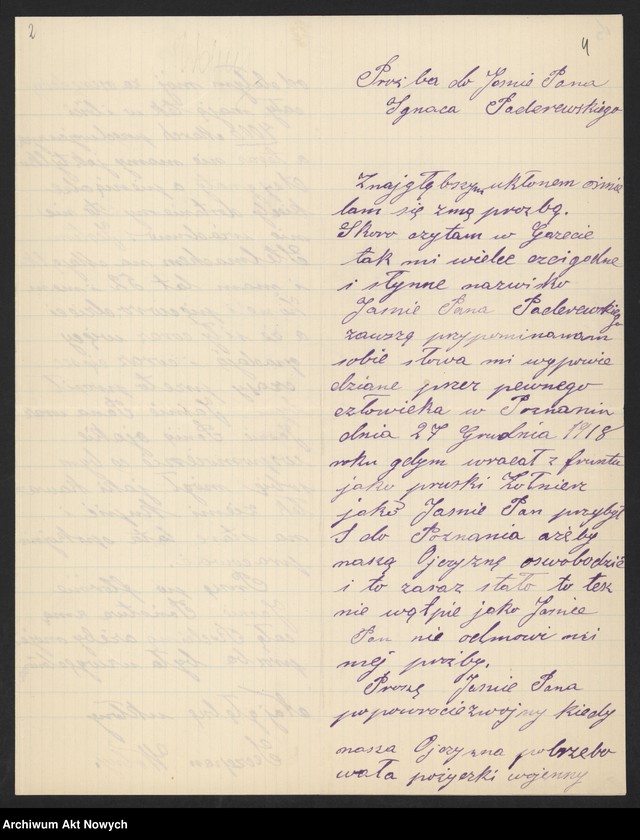 2
4
Prozba do Jasnie Pana
Ignaca Paderewskiego
Znajgłębszym ukłonem ośmie
lam się zmą prozbą.
Skoro czytam w Gazecie
tak mi wielce czcigodne
i słynne nazwisko
Jasnie Pana Paderewskiego
zawszę przypominawam
sobie słowa mi wypowie
dziane przez pewnego
człowieka w Poznaniu
dnia 27 Grudnia 1918
roku gdym wracał z fruntu
jako pruski Żołnierz
jako Jasnie Pan przybył
do Poznania ażeby
naszą Ojczyznę oswobodzić
i to zaraz stało to tesz
nie wątpie jako Jasnie
Pan nie odmowi mi
mej prożby.
Proszę Jasnie Pana
po powrocie zwojny kiedy
nasza Ojczyzna potrzebo
wała pożyczki wojenny
Archiwum Akt Nowych